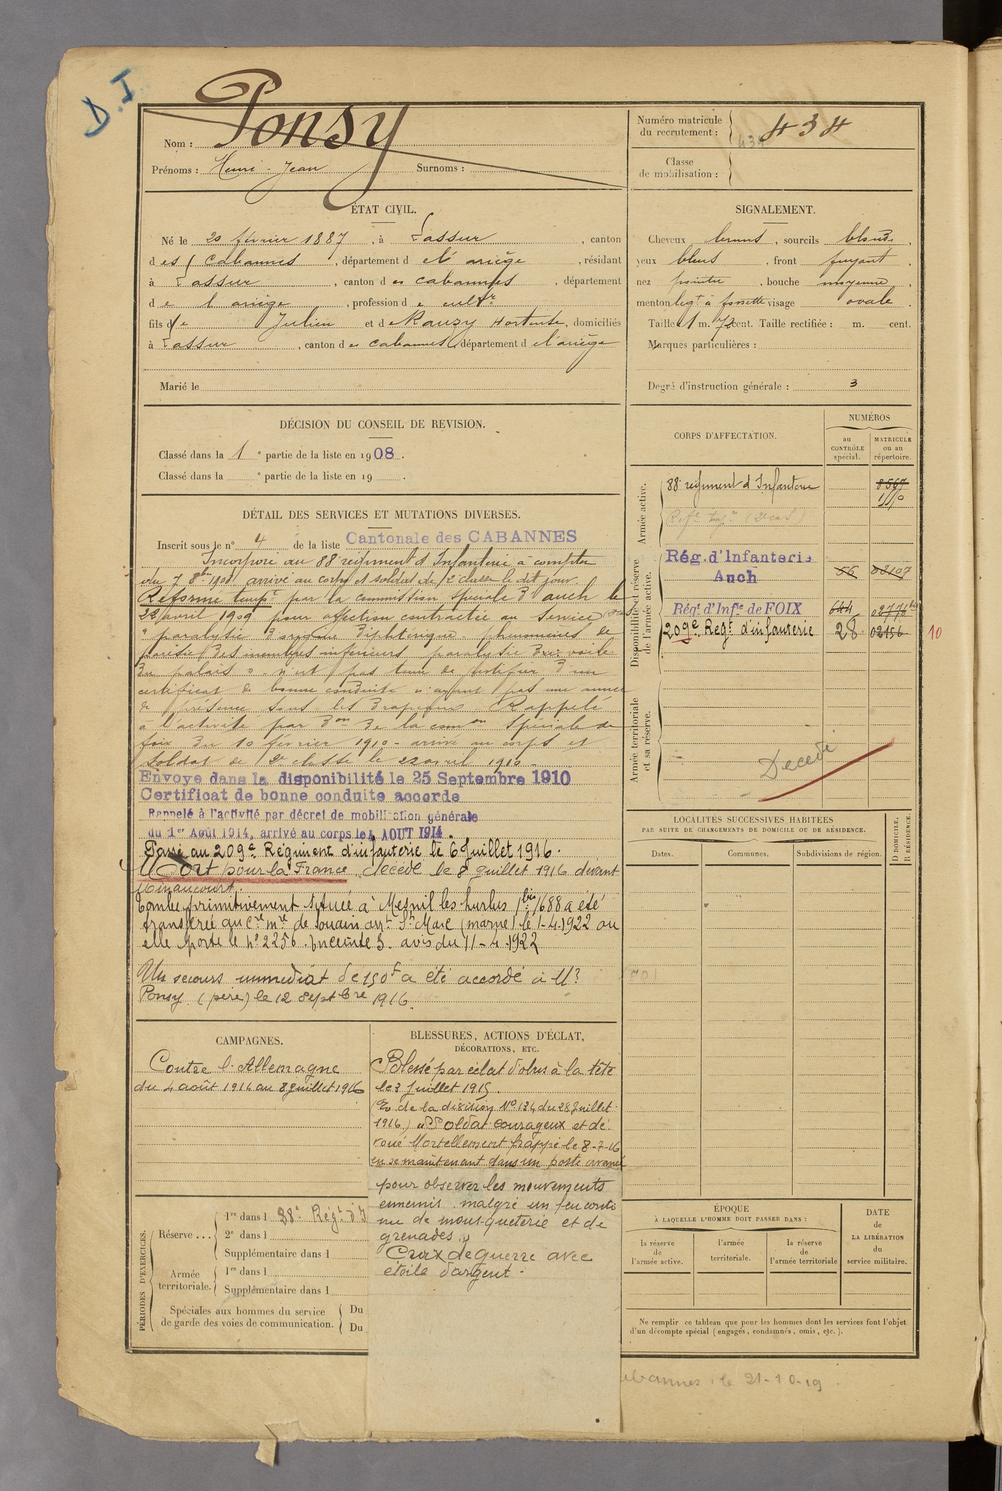 D.I
Nom : Ponsy
Prénoms : Henri - Jean Surnoms :
Numéro matricule du recrutement : 434
434
Classe de mobilisation :
ÉTAT CIVIL.
Né le 20 février 1887, à Lassur, canton
des Cabannes, département de l'ariège, résidant
à Lassur, canton des cabannes, département
de l'ariège, profession de cultr
fils de Julien et de Rauzy Hortense, domiciliés
à Lassur, canton des cabannes, département de l'ariège
Marié le
SIGNALEMENT.
Cheveux bruns, sourcils blonds,
yeux bleus, front fuyant,
nez pointu, bouche moyenne,
menton à fossette visage ovale
Taille : 1 m. 72 cent. Taille rectifiée : m. cent.
Marques particulières :
Degré d'instruction générale : 3
DÉCISION DU CONSEIL DE REVISION.
Classé dans la 1e partie de la liste en 1908.
Classé dans la e partie de la liste en 19
DÉTAIL DES SERVICES ET MUTATIONS DIVERSES.
Inscrit sous le n° 4 de la liste Cantonale des CABANNES
Incorporé au 88e régiment d'Infanterie à compter
du 7 8bre 1908, arrivé au corps et soldat de 2e classe le dit jour.
Réformé tempre par la commission spéciale d'auch le
22 avril 1909 pour affection contractée au service
"paralysie d'origine diphtérique - phénomènes de
parésie des membres inférieurs paralysie du voile
du palais". n'est pas tenu de justifier d'un
certificat de bonne conduite n'ayant pas une année
de présence sous les drapeaux. Rappelé
à l'activité par don de la comon spéciale de
foix du 10 février 1910 - arrivé au corps et
soldat de 2e classe le 22 avril 1910 -
Envoyé dans la disponibilité le 25 Septembre 1910
Certificat de bonne conduite accordé
Rappelé à l'activité par décret de mobilisation générale
du 1er Août 1914, arrivé au corps le 4 AOUT 1914.
Passé au 209e Régiment d'infanterie le 6 Juillet 1916.
Mort pour la France, décédé le 8 juillet 1916 devant
Tombe primitivement située à Mesnil les hurlus 1688 a été
transférée au Cre mre de Souain (marne) le 1-4-1922 ou
elle porte le N° 2256. Enceinte 3. avis du 11-4-1922
Un secours immédiat de 150f a été accordé à Mr
Ponsy (père) le 12 Septbre 1916
CORPS D'AFFECTATION.
NUMÉROS
au CONTRÔLE spécial.
MATRICULE ou au répertoire.
Armée active.
88e régiment d'Infanterie 8567
Disponibilité et réserve de l'armée active.
Rég. d'Infanterie Auch 56 03107
Régt d'Infie de FOIX 644
209e Regt d'infanterie 28 02156
10
Armée territoriale et sa réserve.
Décédé
LOCALITÉS SUCCESSIVES HABITÉES
PAR SUITE DE CHANGEMENTS DE DOMICILE OU DE RÉSIDENCE.
Dates. Communes. Subdivisions de région. D DOMICILE. R RÉSIDENCE.
CAMPAGNES.
Contre l'Allemagne
du 4 août 1914 au 8 juillet 1916
BLESSURES, ACTIONS D'ÉCLAT,
DÉCORATIONS, ETC.
Blessé par éclat d'obus à la tête
le 3 Juillet 1915.
(O. de la division N° 134 du 28 Juillet
1916) "Soldat courageux et dé-
voué Mortellement frappé le 8-7-16
en se maintenant dans un poste avancé
pour observer les mouvements
ennemis malgré un feu conti-
nu de mousqueterie et de
grenades."
Croix de guerre avec
étoile d'argent.
PÉRIODES D'EXERCICES.
Réserve... 1re dans l 88e Régt d'I
2e dans l
Supplémentaire dans l
Armée territoriale. 1re dans l
Supplémentaire dans l
Spéciales aux hommes du service de garde des voies de communication. Du
Du
ÉPOQUE
À LAQUELLE L'HOMME DOIT PASSER DANS :
la réserve de l'armée active.
l'armée territoriale.
la réserve de l'armée territoriale
DATE DE LA LIBÉRATION du service militaire.
Ne remplir ce tableau que pour les hommes dont les services font l'objet
d'un décompte spécial (engagés, condamnés, omis, etc.).
le 21-10-19